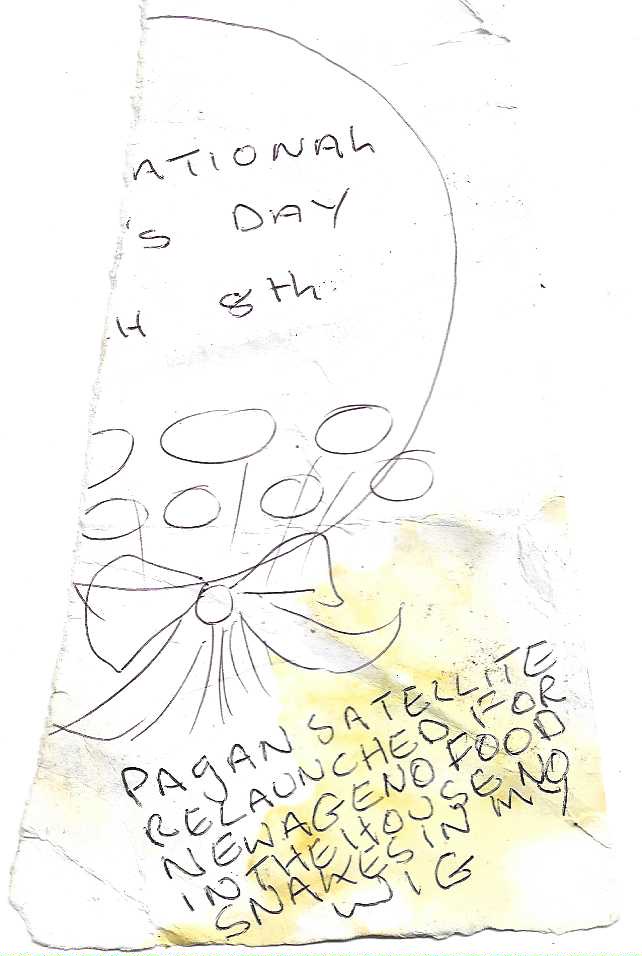 ATIONAL
'S DAY
H 8th
PAGAN SATELLITE
RELAUNCHED FOR
NEWAGENO FOOD
INTHEHOUSE NO
SNAKES IN MY
WIG